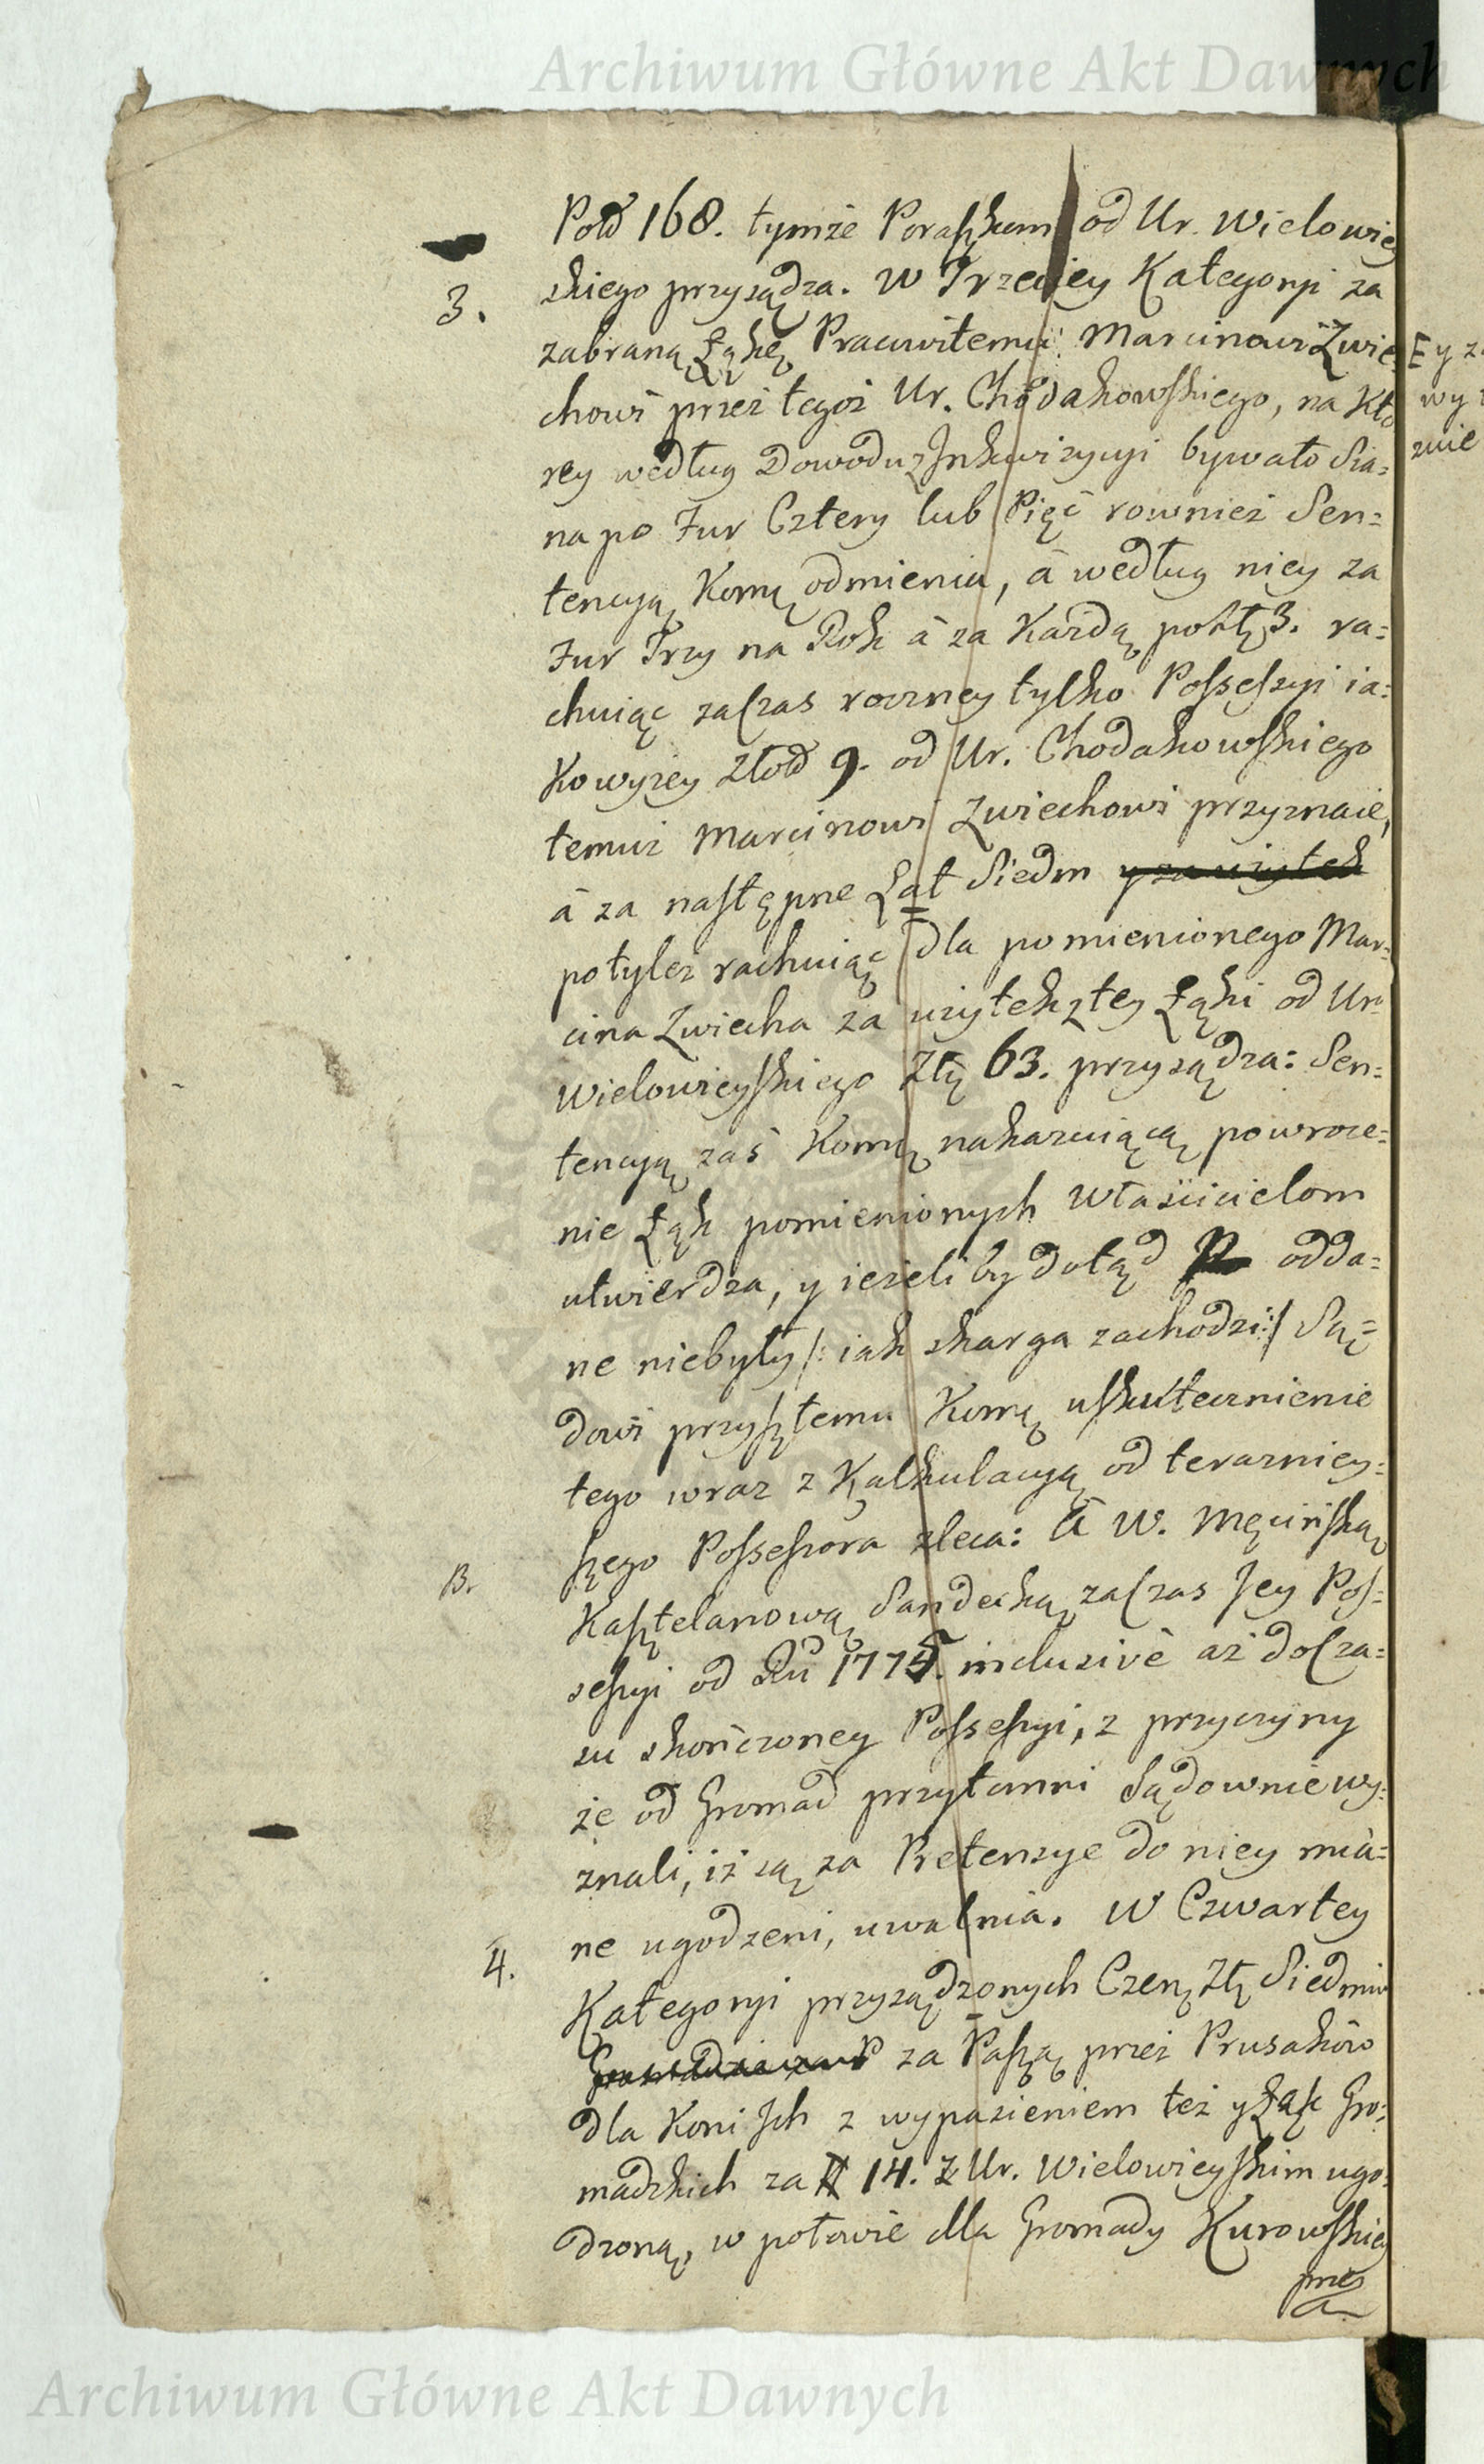 Archiwum Główne Akt Dawnych
Pold 168. tymże Poraszkom od Ur. Wielowiey
skiego przysądza. W Trzeciey Kategoryi za
3.
zabraną Łąkę Pracowitemu Marcinowi Zwie
chowi przez tegoż Ur. Chodakowskiego, na kto
rey według Dowodu z Inkwizycyi bywało Sia=
na po Fur Cztery lub Pięć rownież Sen=
tencyą Komą odmienia, á według niey za
Fur Trzy na Rok á za Każdą po Zł 3. ra=
chuiąc za Czas roczney tylko Possessyi ia=
Kowyzey Złold 9. od Ur. Chodakowskiego
temuż Marcinowi Zwiechowi przyznaie,
á za następne Lat Siedm y za użytek
potyleż rachuiąc dla pomienionego Mar=
cina Zwiecha za użytek z tey Łąki od Ur.
Wielowieyskiego Złł 63. przysądza: Sen=
tencyą zaś Komą nakazuiącą powroce=
nie Łąk pomienionych Właścicielom
utwierdza, y ieżeliby dotąd odda=
ne niebyły /: iak skarga zachodzi :/ Są=
dowi przyszłemu Komą uskutecznienie
tego wraz z Kalkulacyą od terazniey=
szego Possessora zleca: á W. Męcińską
B.
Kasztelanową Sandecką za Czas Jey Pos=
sessyi od Ru 1775. inclusivè aż do Cza=
su skończoney Possessyi, z przyczyny
że od Gromad przytomni Sądownie wy=
znali, iż są za Pretensye do niey mia=
ne ugodzeni, uwalnia. W Czwartey
4.
Kategoryi przysądzonych Czer. Zł Siedmiu
za Paszą przez Prusaków
dla Koni Ich z wypasieniem też y Łąk Gro=
madzkich za # 14. z Ur. Wielowieyskim ugo=
dzoną, w połowie dla Gromady Kurowskiey
przez
Ey z
wy
znie
Archiwum Główne Akt Dawnych